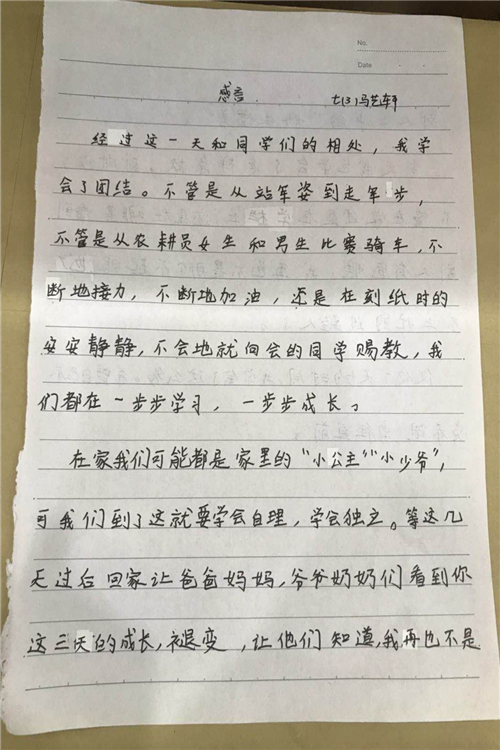 No.
Date
感言
七(3)马艺轩
经过这一天和同学们的相处，我学
会了团结。不管是从站军姿到走军步，
不管是从农耕员女生和男生比赛骑车，不
断地接力，不断地加油，还是在刻纸时的
安安静静，不会地就向会的同学赐教，我
们都在一步步学习，一步步成长。
在家我们可能都是家里的“小公主”“小少爷”，
可我们到了这就要学会自理，学会独立。等这几
天过后回家让爸爸妈妈，爷爷奶奶们看到你
这三天的成长，褪变，让他们知道，我再也不是